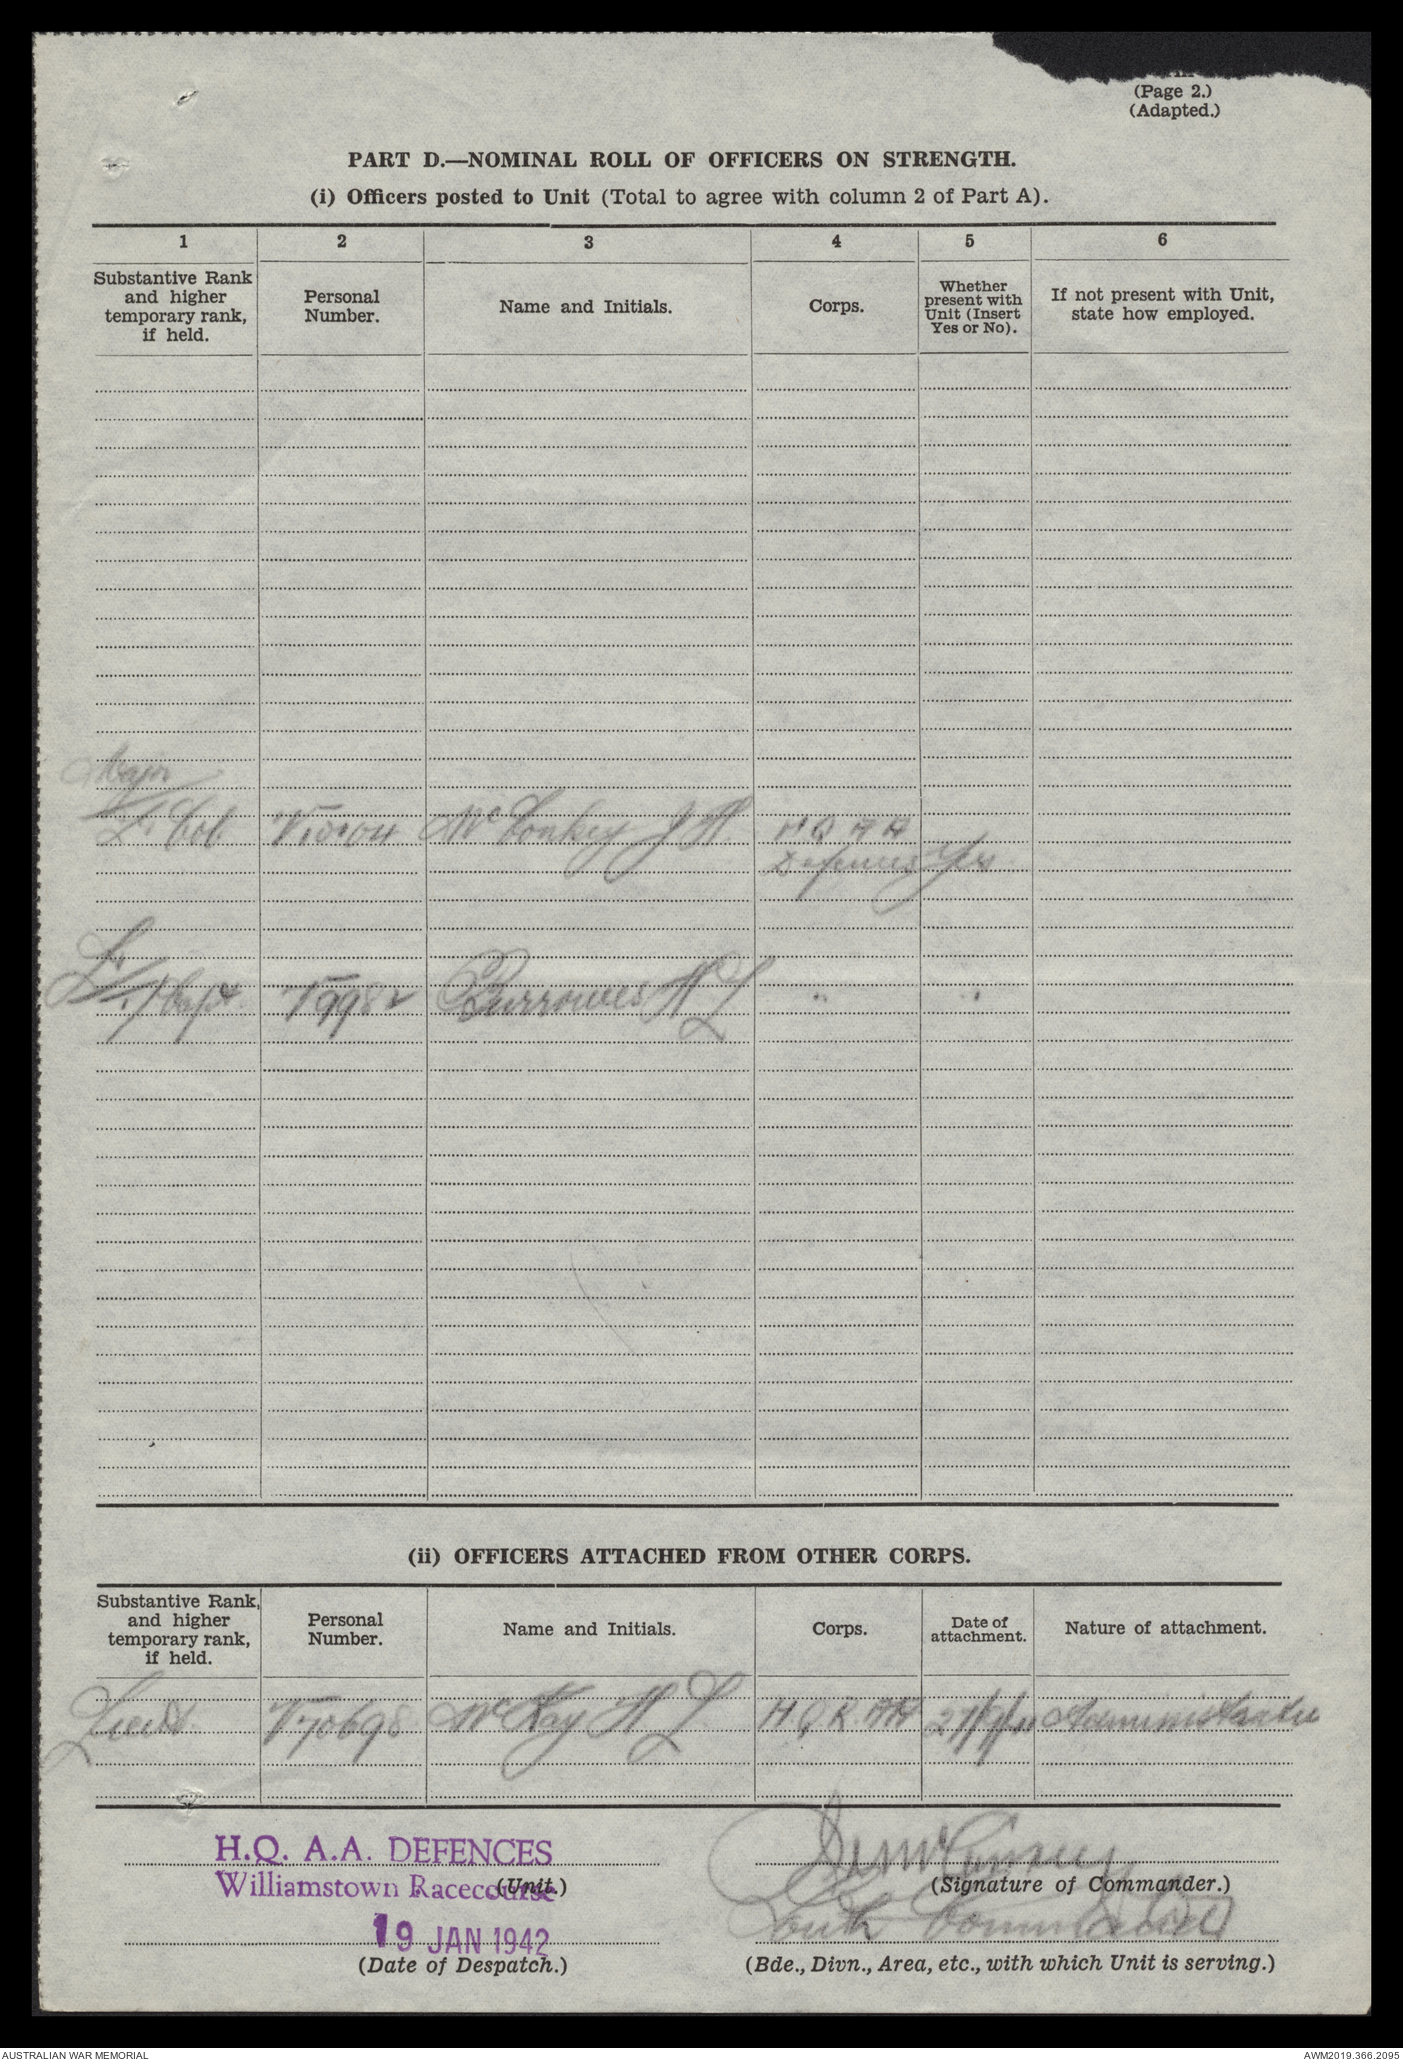 (Page 2.)
(Adapted.)
PART D.—NOMINAL ROLL OF OFFICERS ON STRENGTH.
(i) Officers posted to Unit (Total to agree with column 2 of Part A).
1 2 3 4 5 6
Substantive Rank and higher temporary rank, if held.
Personal Number.
Name and Initials.
Corps.
Whether present with Unit (Insert Yes or No).
If not present with Unit, state how employed.
Major
Lt Col McConkey J H. H Q A A
Defences Yes
Lt
T/Capt. V9982 Burrowes H L " "
(ii) OFFICERS ATTACHED FROM OTHER CORPS.
Substantive Rank, and higher temporary rank, if held.
Personal Number.
Name and Initials.
Corps.
Date of attachment.
Nature of attachment.
Lieut. V70698 McKay H L H.Q.R.AA Administrative
H.Q. A.A. DEFENCES
Williamstown Racecourse
(Unit.)
(Signature of Commander.)
South Command
19 JAN 1942
(Date of Despatch.)
(Bde., Divn., Area, etc., with which Unit is serving.)
AUSTRALIAN WAR MEMORIAL
AWM2019.366.2095